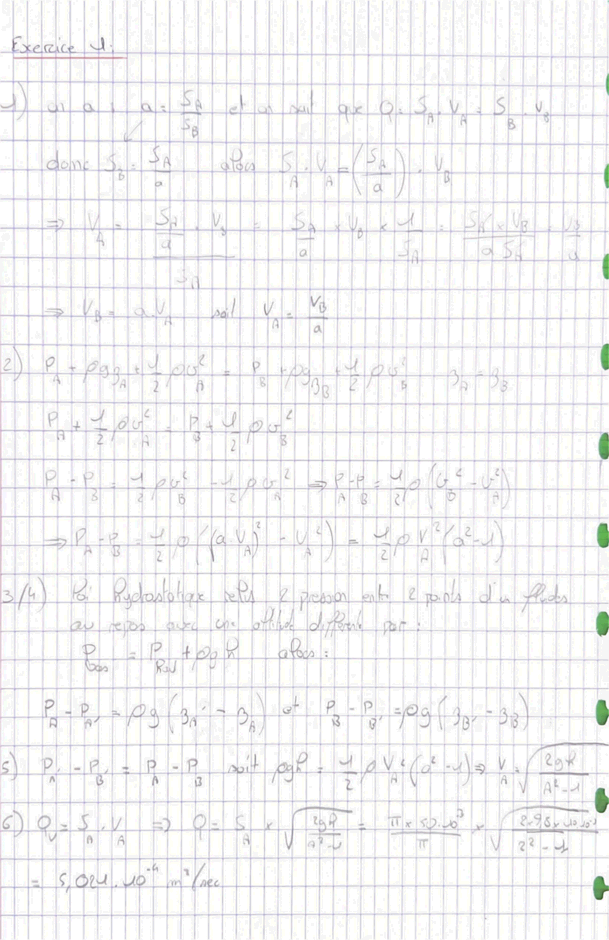 Exercice 1:
1) on a : a = S_A / S_B et on sait que Q = S_A . V_A = S_B . V_B
donc S_B = S_A / a alors S_A . V_A = (S_A / a) . V_B
⇒ V_A = (S_A / a . V_B) / S_A = S_A / a × V_B × 1 / S_A = S_A × V_B / a S_A = V_B / a
⇒ V_B = a . V_A soit V_A = V_B / a
2) P_A + ρg z_A + 1/2 ρ v_A² = P_B + ρg z_B + 1/2 ρ v_B² z_A = z_B
P_A + 1/2 ρ v_A² = P_B + 1/2 ρ v_B²
P_A - P_B = 1/2 ρ v_B² - 1/2 ρ v_A² ⇒ P_A - P_B = 1/2 ρ (v_B² - v_A²)
⇒ P_A - P_B = 1/2 ρ ((a V_A)² - V_A²) = 1/2 ρ V_A² (a² - 1)
3/4) loi hydrostatique relis 2 pression entre 2 points d'un fluides
au repos avec une altitude différent par :
P_bas = P_haut + ρgh alors :
P_A - P_A' = ρg (z_A' - z_A) et P_B - P_B' = ρg (z_B' - z_B)
5) P_A' - P_B' = P_A - P_B soit ρgh = 1/2 ρ V_A² (a² - 1) ⇒ V_A = √(2gh / A² - 1)
6) Q_v = S_A . V_A ⇒ Q = S_A × √(2gh / A² - 1) =
= 5,021 . 10⁻⁴ m³/sec